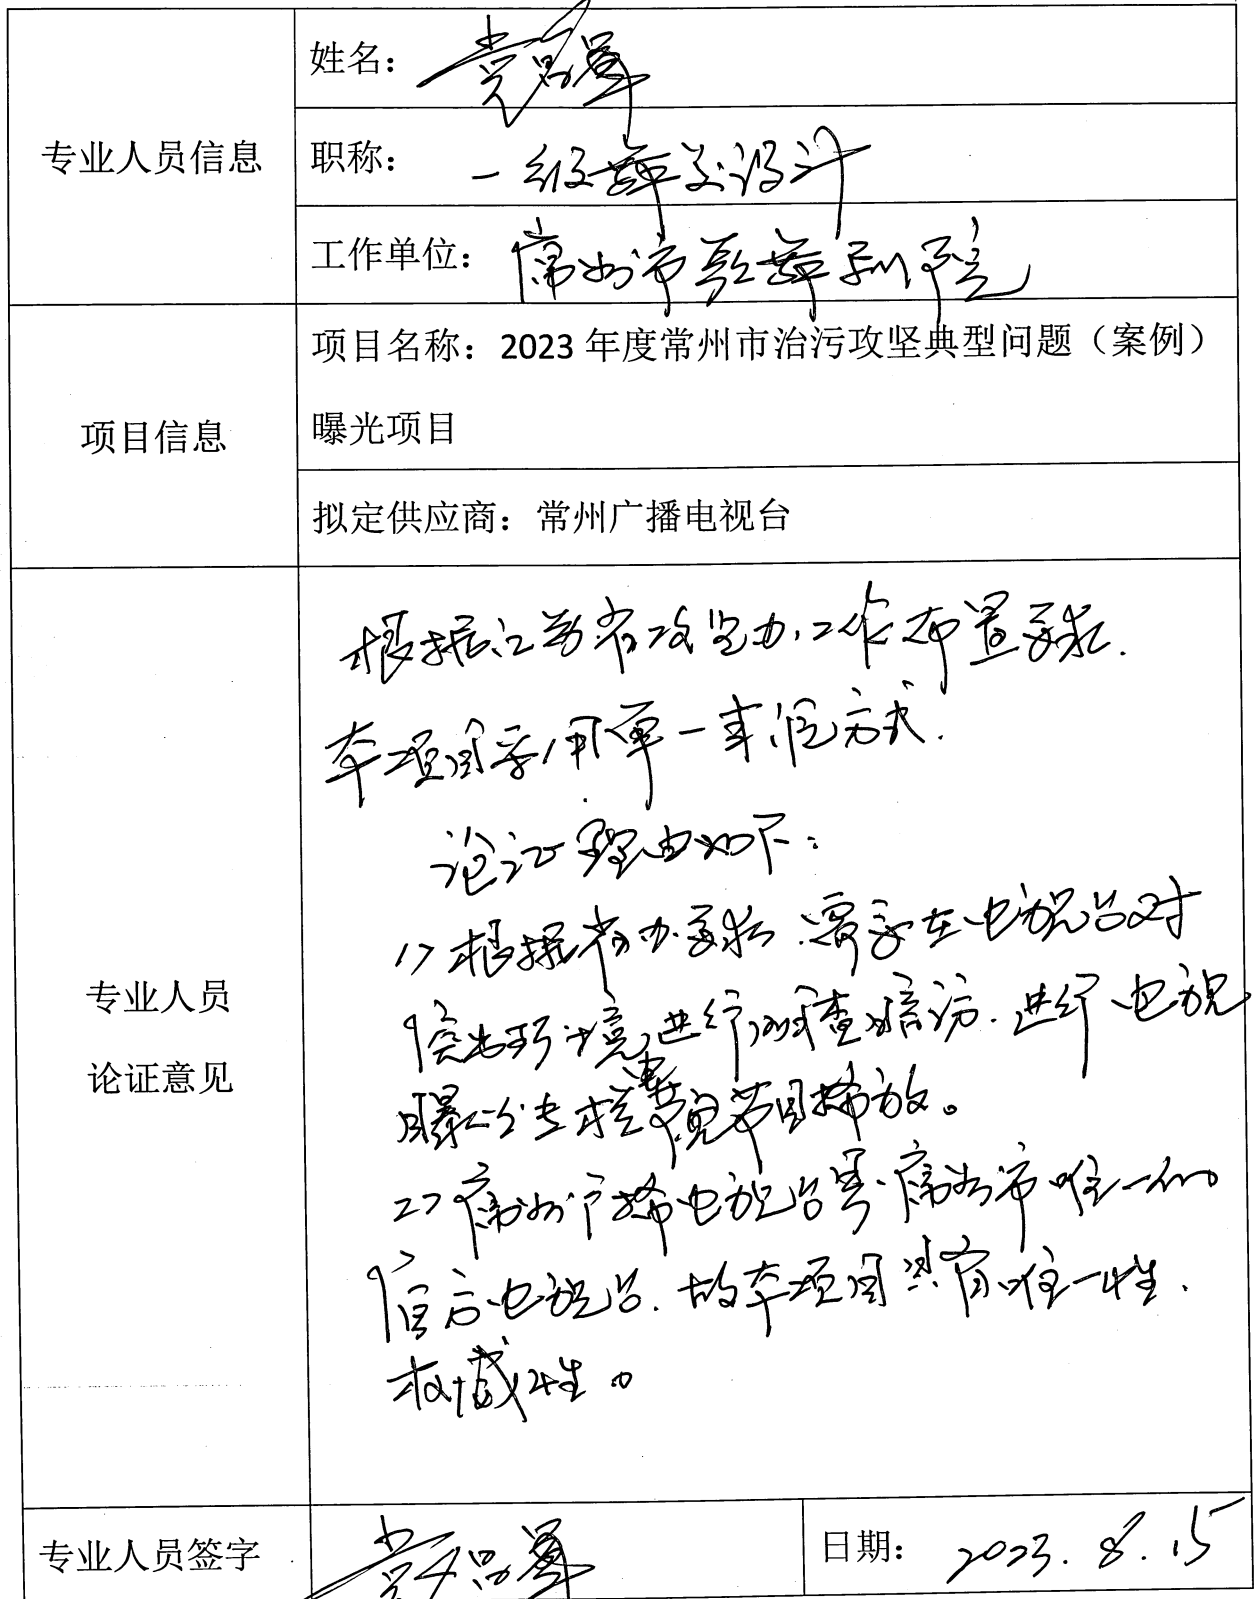 姓名：
专业人员信息
职称：一级舞美设计
工作单位：常州市歌舞剧院
项目名称：2023年度常州市治污攻坚典型问题（案例）
项目信息
曝光项目
拟定供应商：常州广播电视台
根据江苏省攻坚办工作布置要求.
本项目采用单一来源方式.
论证理由如下：
1>根据省办要求.需要在电视台对
突出环境进行调查暗访.进行电视
专业人员
论证意见
曝光专栏节目播放。
2>常州广播电视台是常州市唯一的
官方电视台.故本项目具有唯一性.
权威性。
专业人员签字
日期：2023.8.15